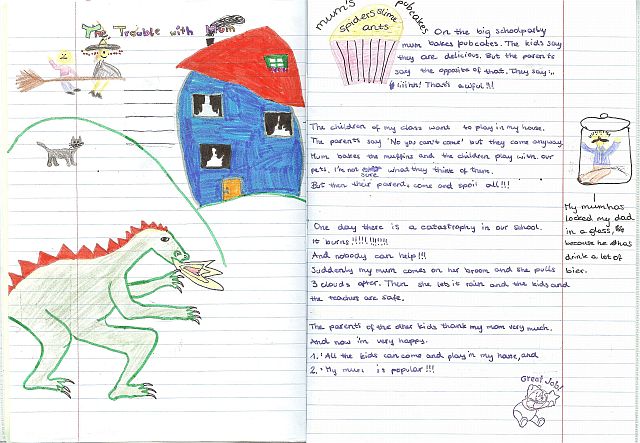 The Trouble with Mum
mum's
pubcakes
spiders slime
ants
On the big schoolparty
mum bakes pubcakes. The kids say
they are delicious. But the parents
say the opposite of that. They say:
iiihh! That's awful!!!
The children of my class want to play in my house.
The parents say 'No you can't come' but they come anyway.
Mum bakes the muffins and the children play with our
pets. I'm not sure what they think of them.
But then their parents come and spoil all!!!
One day there is a catastrophy in our school.
It burns!!!!!!!!!!!
And nobody can help!!!
Suddenly my mum comes on her broom and she pulls
3 clouds after. Then she lets it rain and the kids and
the teacher are safe.
The parents of the other kids thank my mom very much.
And now i'm very happy.
1. All the kids can come and play in my house, and
2. My mum is popular!!!
My mum has
locked my dad
in a glass,
because he has
drink a lot of
bier.
Great Job!